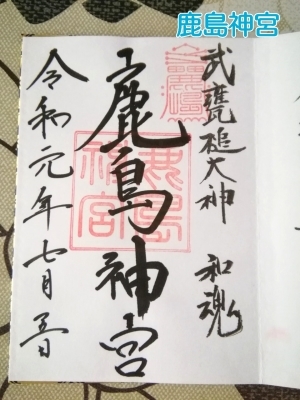 鹿島神宮
武甕槌大神 和魂
鹿島神宮
鹿島
神宮
令和元年七月五日